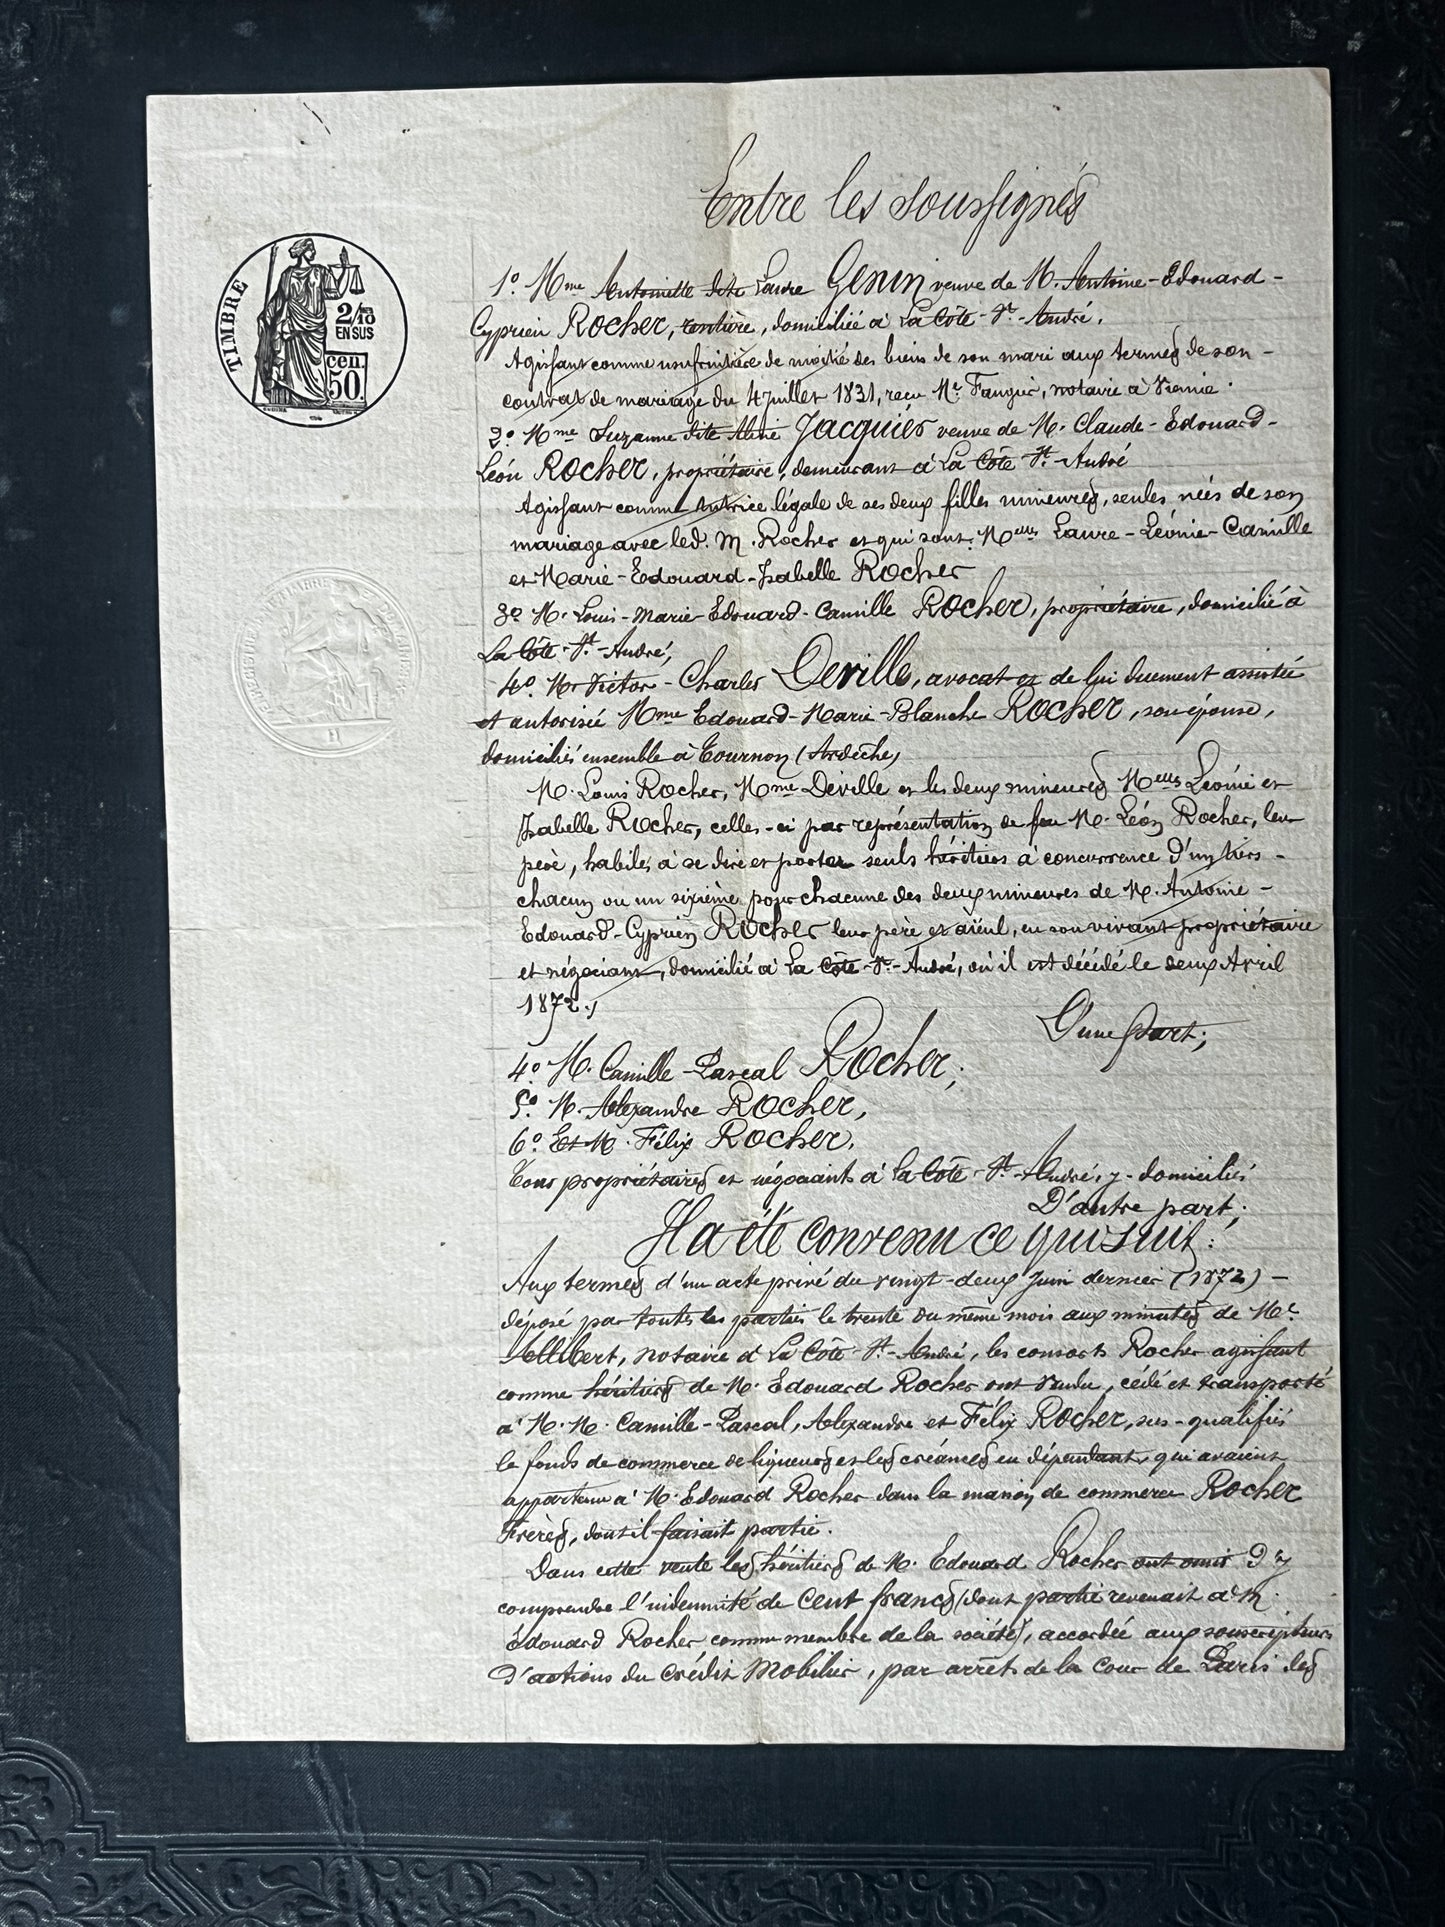 Entre les soussignés
TIMBRE
2/10
EN SUS
cen.
50.
1º. Mme Antoinette dite Laure Genin veuve de M. Antoine-Edouard-
Cyprien Rocher, rentière, domiciliée à La Côte-St-André.
Agissant comme usufruitière de moitié des biens de son mari aux termes de son
contrat de mariage du 4 juillet 1831, reçu Me. Faugier, notaire à Vienne.
2º. Mme Suzanne dite Aliné Jacquier veuve de M. Claude-Edouard-
Léon Rocher, propriétaire, demeurant à La Côte St-André
Agissant comme tutrice légale de ses deux filles mineures, seules nées de son
mariage avec led. M. Rocher et qui sont: Melles Laure-Léonie-Camille
et Marie-Edouard-Isabelle Rocher
3º M. Louis-Marie-Edouard-Camille Rocher, propriétaire, domicilié à
La Côte-St-André,
4º. Mr Victor-Charles Deville, avocat et de lui duement assistée
et autorisée Mme Edouard-Marie-Blanche Rocher, son épouse,
domiciliés ensemble à Tournon (Ardèche)
M. Louis Rocher, Mme Deville et les deux mineures Melles Léonie et
Isabelle Rocher, celles-ci par représentation de feu M. Léon Rocher, leur
père, habiles à se dire et porter seuls héritiers à concurrence d'un tiers-
chacun ou un sixième pour chacune des deux mineures de M. Antoine-
Edouard-Cyprien Rocher leur père et aïeul, en son vivant propriétaire
et négociant, domicilié à La Côte-St-André, où il est décédé le deux Avril
1872.,
D'une part;
4º. M. Camille-Pascal Rocher;
5º. M. Alexandre Rocher,
6º. Et M. Félix Rocher,
Tous propriétaires et négociants à La Côte-St-André, y-domiciliés
D'autre part;
Il a été convenu ce qui suit:
Aux termes d'un acte privé du vingt-deux Juin dernier (1872)-
déposé par toutes les parties le trente du même mois aux minutes de Me.
Allibert, notaire à La Côte-St-André, les consorts Rocher agissant
comme héritiers de M. Edouard Rocher ont vendu, cédé et transporté
à M.M. Camille-Pascal, Alexandre et Félix Rocher, sus-qualifiés
le fonds de commerce de liqueurs et les créances en dépendant, qui avaient
appartenu à M. Edouard Rocher dans la maison de commerce Rocher
Frères, dont il faisait partie.
Dans cette vente les héritiers de M. Edouard Rocher ont omis d'y
comprendre l'indemnité de cent francs (dont partie revenait à M.
Edouard Rocher comme membre de la société), accordée aux souscripteurs
d'actions du Crédit Mobilier, par arrêt de la Cour de Paris des